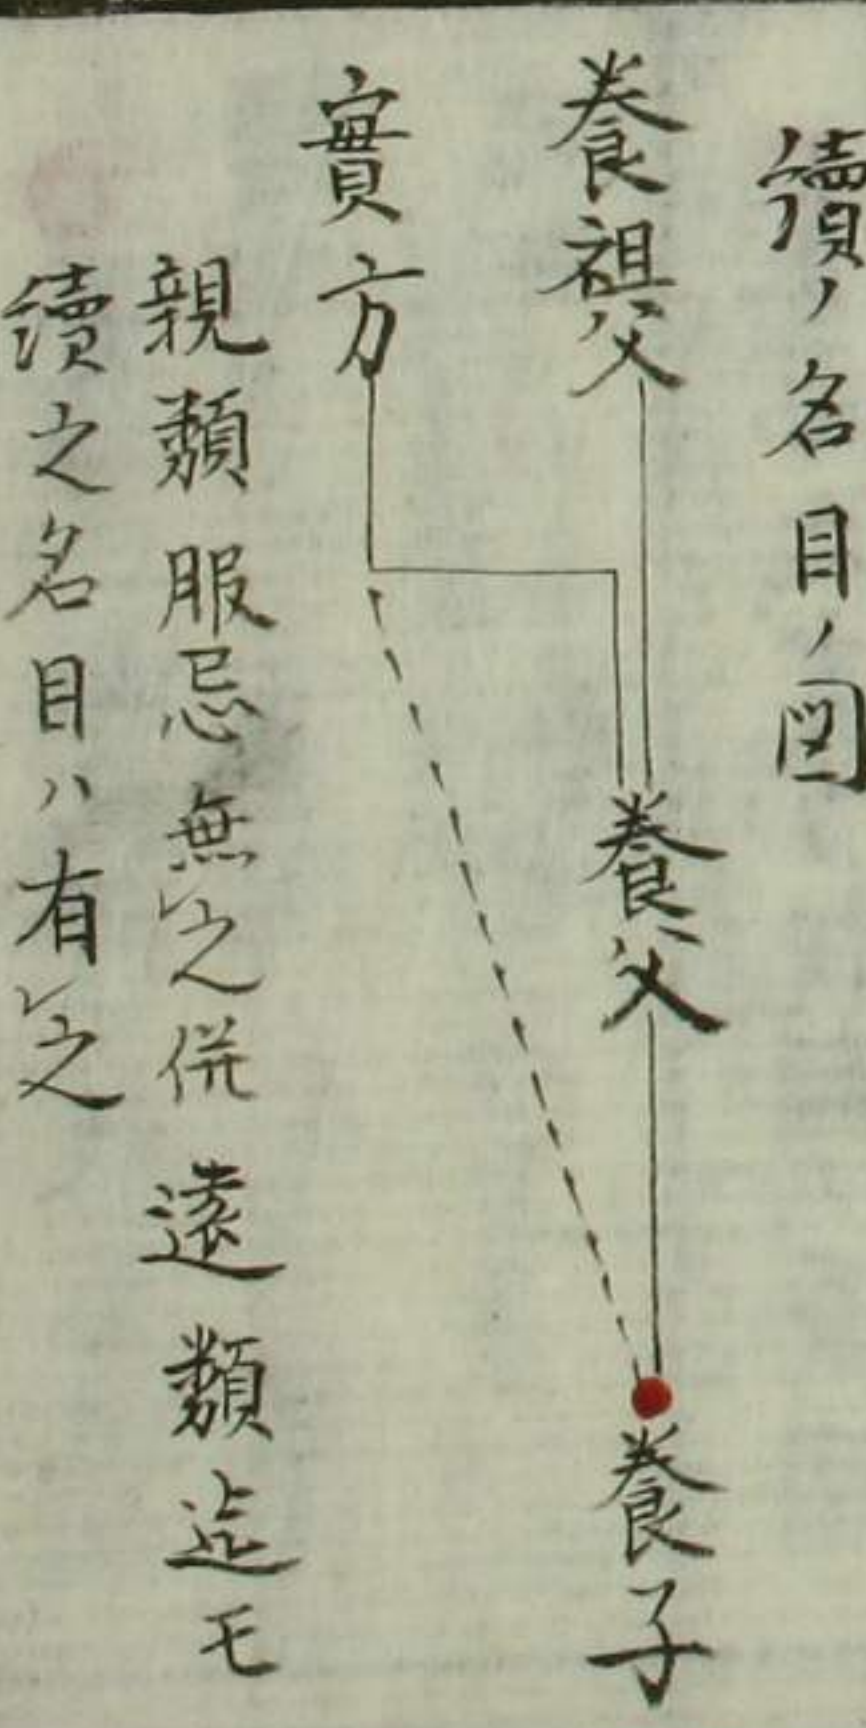 續ノ名目ノ図
養祖父
養父
養子
實方
親類服忌無レ之併遠類迄モ
續之名目ハ有レ之